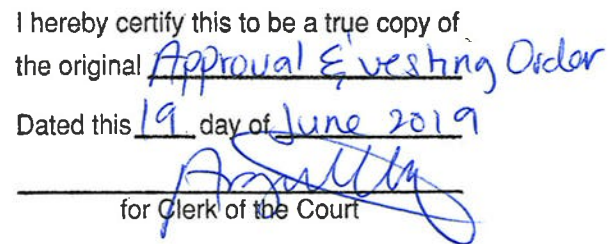 I hereby certify this to be a true copy of
the original Approval & vesting Order
Dated this 19 day of June 2019
for Clerk of the Court